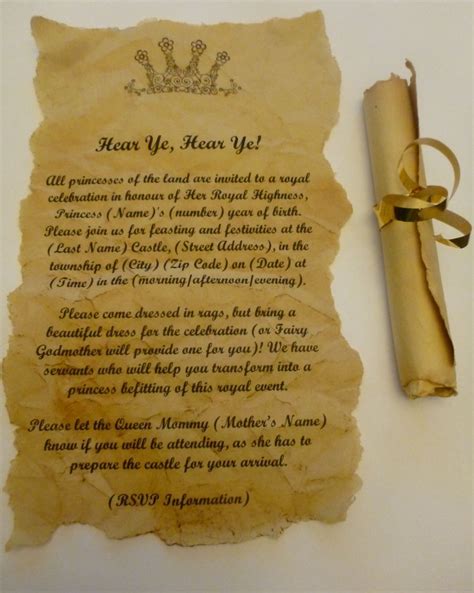 Hear Ye, Hear Ye!
All princesses of the land are invited to a royal
celebration in honour of Her Royal Highness,
Princess (Name)'s (number) year of birth.
Please join us for feasting and festivities at the
(Last Name) Castle, (Street Address), in the
township of (City) (Zip Code) on (Date) at
(Time) in the (morning/afternoon/evening).
Please come dressed in rags, but bring a
beautiful dress for the celebration (or Fairy
Godmother will provide one for you)! We have
servants who will help you transform into a
princess befitting of this royal event.
Please let the Queen Mommy (Mother's Name)
know if you will be attending, as she has to
prepare the castle for your arrival.
(RSVP Information)